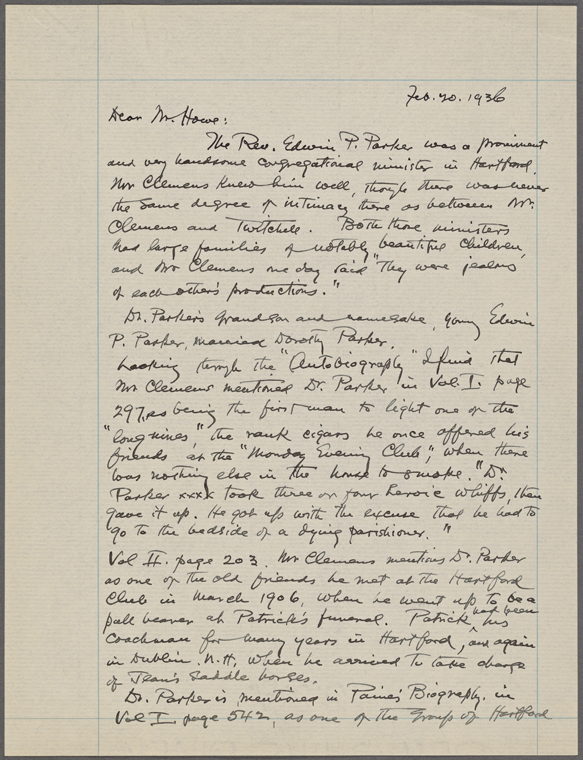 Feb. 20. 1936
Dear Mr. Howe:
The Rev. Edwin P. Parker was a prominent
and very handsome Congregational minister in Hartford.
Mr Clemens knew him well, though there was never
the same degree of intimacy there as between Mr.
Clemens and Twitchell. Both those ministers
had large families of notably beautiful children,
and Mr Clemens one day said "They were jealous
of each other's productions."
Dr. Parker's grandson and namesake, young Edwin
P. Parker, married Dorothy Parker.
Looking through the "Autobiography" I find that
Mr Clemens mentioned Dr. Parker in Vol. I. page
297, as being the first man to light one of the
"long nines," the rank cigars he once offered his
friends at the "Monday Evening Club", when there
was nothing else in the house to smoke. "Dr.
Parker xxxx took three or four heroic whiffs, then
gave it up. He got up with the excuse that he had to
go to the bedside of a dying parishioner."
Vol II. page 203. Mr Clemens mentions Dr. Parker
as one of the old friends he met at the Hartford
Club in March 1906, when he went up to be a
pall bearer at Patrick's funeral. Patrick had been his
Coachman for many years in Hartford, and again
in Dublin. N.H. when he arrived to take charge
of Jean's saddle horses.
Dr. Parker is mentioned in Paine's Biography. in
Vol I. page 542, as one of the Group of Hartford